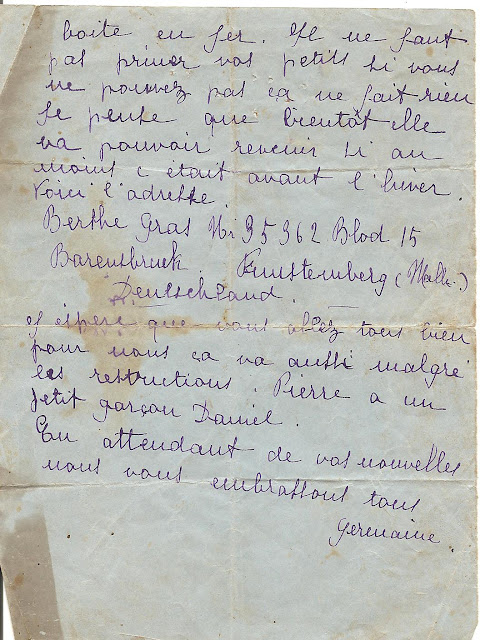 boite en fer. Il ne faut
pas priver vos petits si vous
ne pouvez pas ça ne fait rien
Je pense que bientôt elle
va pouvoir revenir si au
moins c etait avant l'hiver.
Voici l'adresse.
Berthe Gras Nr 35362 Blod 15
Barensbruck. Furstemberg (Malk.)
Deutschland.
J espere que vous allez tous bien
pour nous ça va aussi malgré
les restrictions. Pierre a un
petit garçon Daniel.
En attendant de vos nouvelles
nous vous embrassons tous
Germaine.